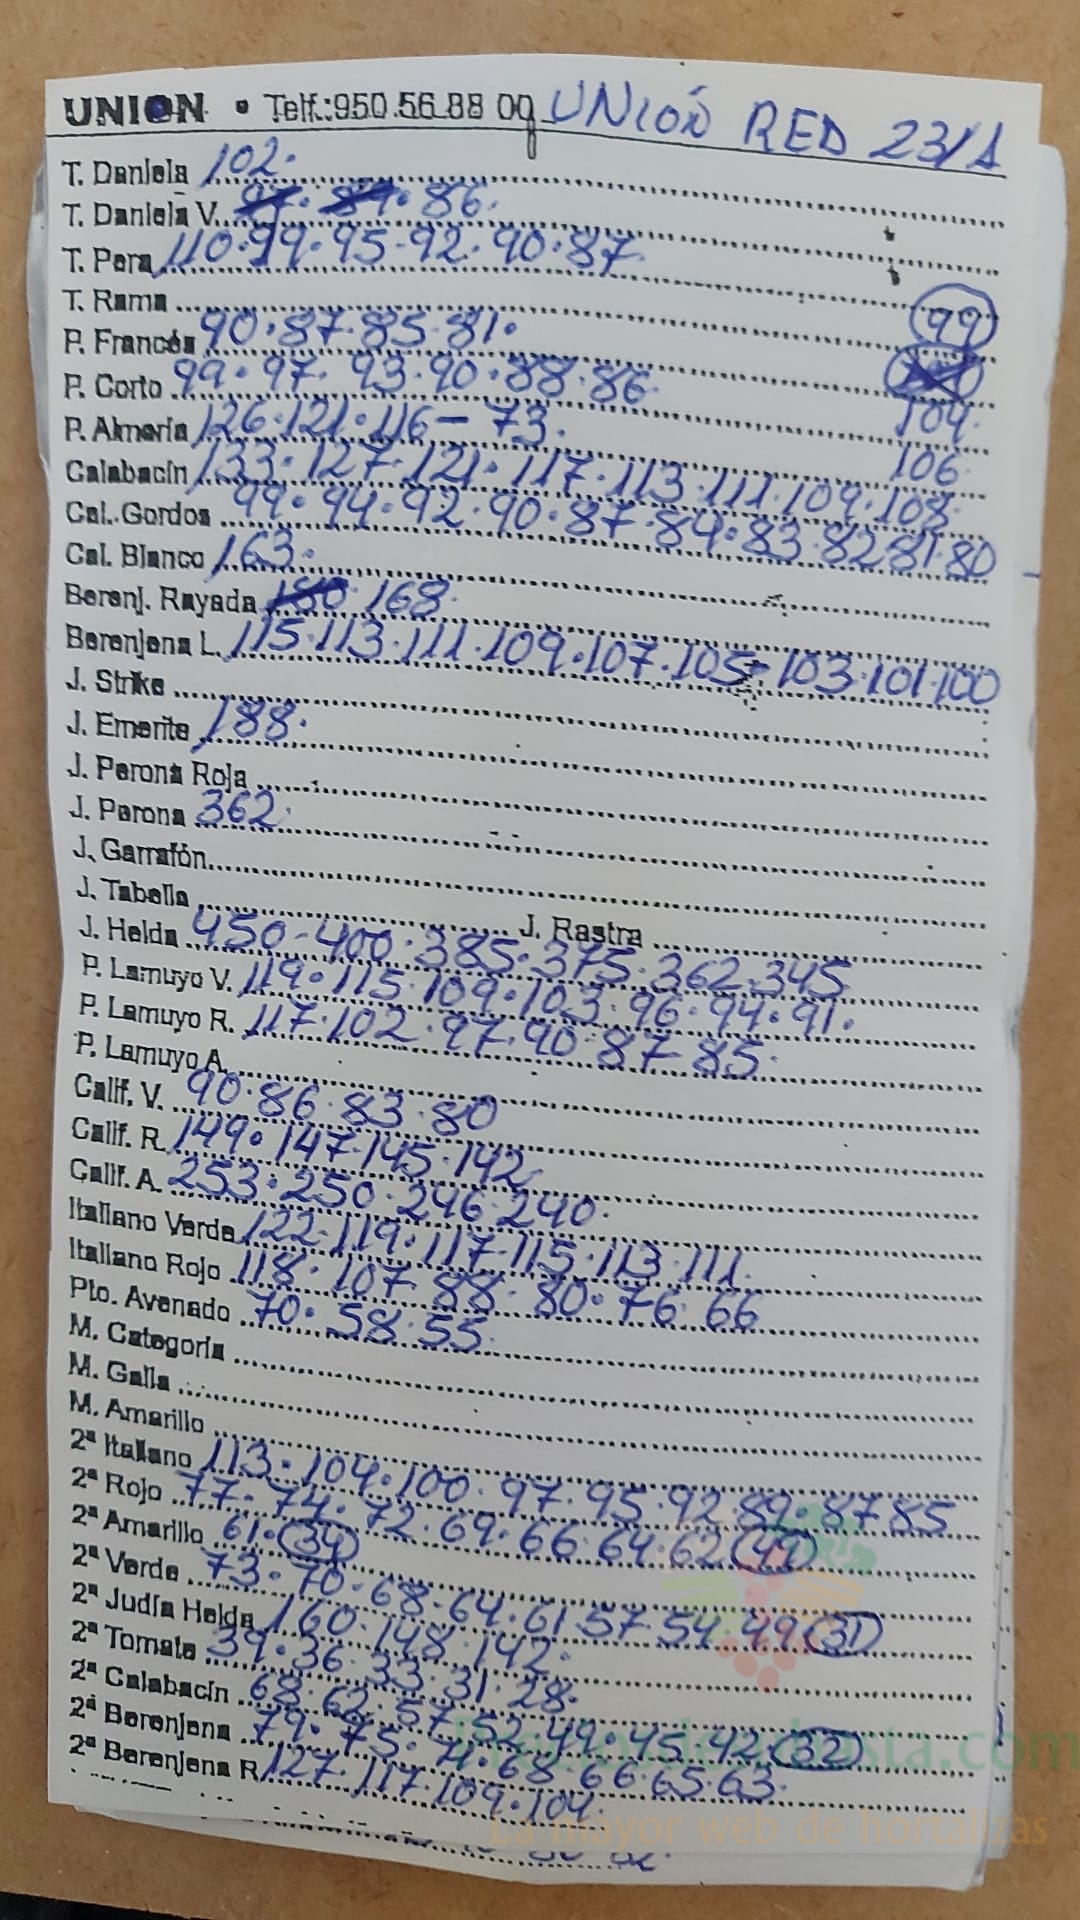 UNION • Telf.:950.56.88 00 UNIÓN RED 23/1
T. Daniela 102.
T. Daniela V. 97. 89. 86.
T. Pera 110.99.95-92.90.87
T. Rama 99
P. Francés 90.87.85.81.
P. Corto 99.97.93.90.88.86 104.
P. Almería 126.121.116 - 73. 106
Calabacín 133.127.121.117.113.111.109.108
Cal. Gordos 99.94.92.90.87.84.83.82.81.80
Cal. Blanco 163.
Berenj. Rayada 180 168
Berenjena L. 115.113.111.109.107.105-103.101.100
J. Strike
J. Emerite 188.
J. Perona Roja
J. Perona 362
J. Garrafón
J. Tabella J. Rastra
J. Helda 450-400.385.375.362.345
P. Lamuyo V. 119.115.109.103.96.94.91.
P. Lamuyo R. 117.102.97.90.87.85.
P. Lamuyo A.
Calif. V. 90.86.83.80
Calif. R. 149.147.145.142
Calif. A. 253.250.246.240.
Italiano Verde 122.119.117.115.113.111
Italiano Rojo 118.107.88.80.76.66
Pto. Avenado 70.58.55
M. Categoría
M. Galla
M. Amarillo
2ª Italiano 113.104.100.97.95.92.89.87.85
2ª Rojo 77.74.72.69.66.64.62 (49)
2ª Amarillo 61.(34)
2ª Verde 73.70.68.64.61.57.54.49 (31)
2ª Judía Helda 160.148.142.
2ª Tomate 39.36.33.31.28.
2ª Calabacín 68.62.57.52.49.45.42 (32)
2ª Berenjena 79.75.71.68.66.65.63.
2ª Berenjena R. 127.117.109.104.
La mayor web de hortalizas